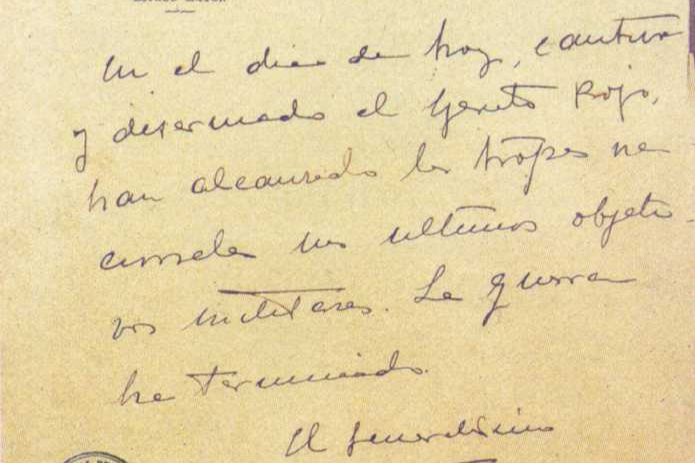 En el dia de hoy, cautivo
y desarmado el Ejercito Rojo,
han alcanzado las tropas na
cionales sus ultimos objeti
vos militares. La guerra
ha terminado.
El Generalisimo